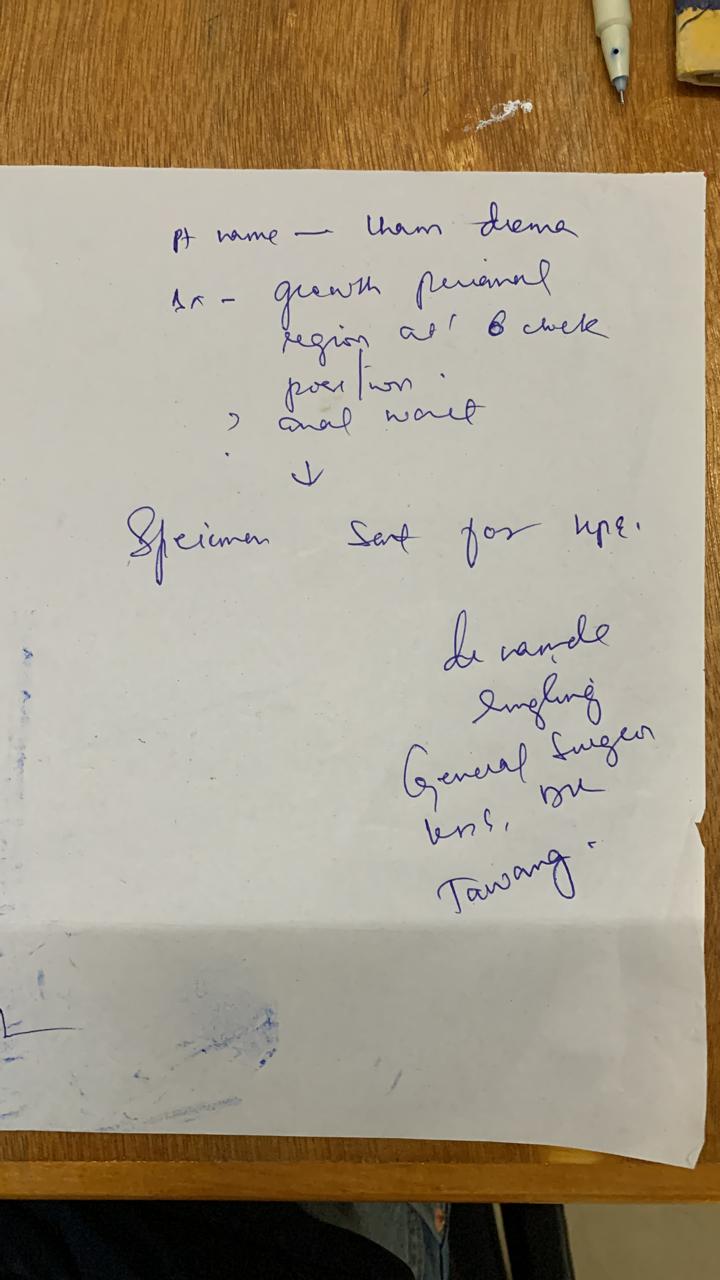 pt name — Lham drema
Dx - growth perianal
region at 6 clock
position.
? anal wart
↓
Specimen sent for HPE.
Dr
General Surgeon
KDS, DH
Tawang.